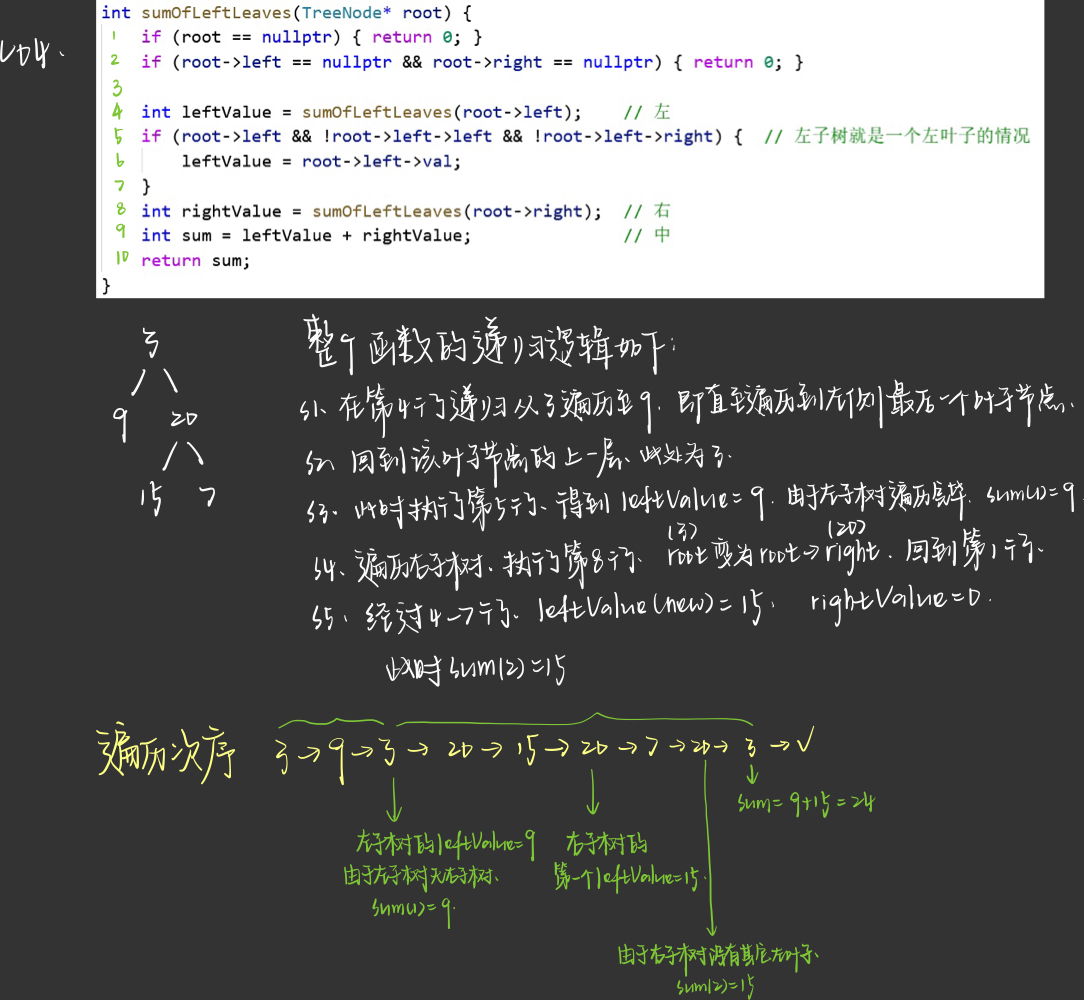 404.
int sumOfLeftLeaves(TreeNode* root) {
1 if (root == nullptr) { return 0; }
2 if (root->left == nullptr && root->right == nullptr) { return 0; }
3
4 int leftValue = sumOfLeftLeaves(root->left); // 左
5 if (root->left && !root->left->left && !root->left->right) { // 左子树就是一个左叶子的情况
6 leftValue = root->left->val;
7 }
8 int rightValue = sumOfLeftLeaves(root->right); // 右
9 int sum = leftValue + rightValue; // 中
10 return sum;
}
3
9 20
15 7
整个函数的递归逻辑如下:
S1、在第4行递归从3遍历至9，即直至遍历到左侧最后一个叶子节点、
S2、回到该叶子节点的上一层、此处为3.
S3、此时执行第5行、得到leftValue=9，由于左子树遍历完毕，sum(1)=9
(3) (20)
S4、遍历右子树、执行第8行、root变为root->right，回到第1行、
S5、经过4→7行、leftValue(new)=15， rightValue=0.
此时sum(2)=15
遍历次序 3→9→3→20→15→20→7→20→3→√
sum=9+15=24
左子树的leftValue=9
由于左子树无右子树、
sum(1)=9.
右子树的
第一个leftValue=15.
由于右子树没有其它左叶子、
sum(2)=15